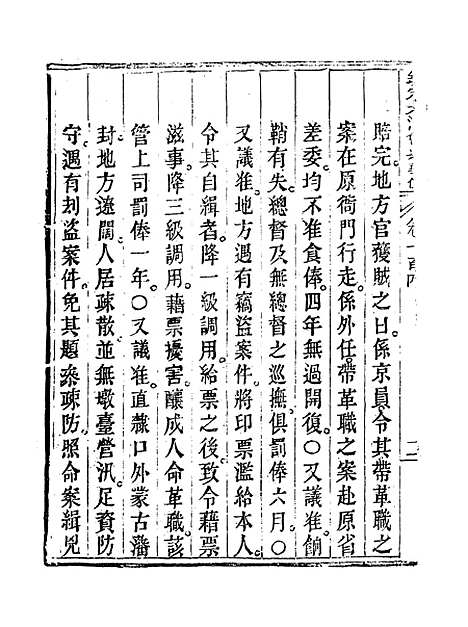 賠完。地方官獲賊之日。係京員。令其帶革職之
案在原衙門行走。係外任。帶革職之案赴原省
差委。均不准食俸。四年無過開復。○又議准。餉
鞘有失。總督及無總督之巡撫。俱罰俸六月。○
又議准。地方遇有竊盜案件。將印票濫給本人。
令其自緝者。降一級調用。給票之後。致令藉票
滋事。降三級調用。藉票擾害。釀成人命。革職。該
管上司罰俸一年。○又議准。直隸口外蒙古藩
封。地方遼闊。人居疎散。並無墩臺營汛。足資防
守。遇有刦盜案件。免其題叅疎防。照命案緝兇